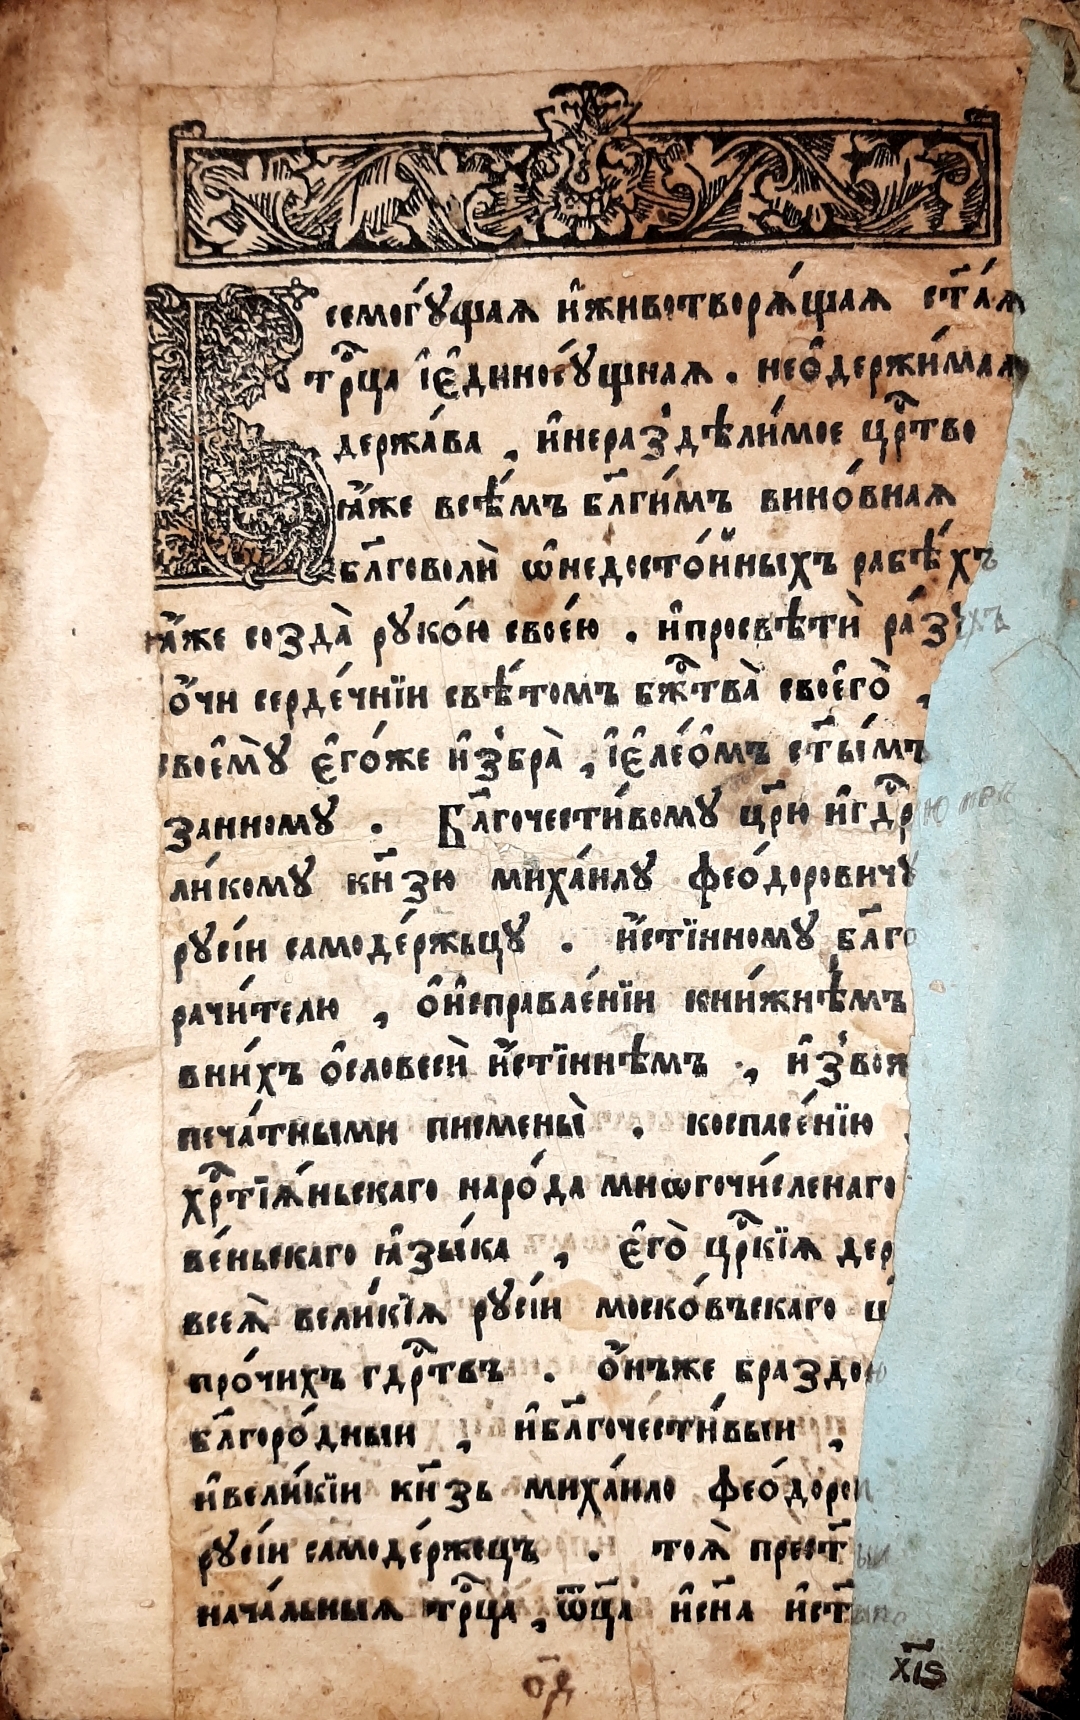 Всемогꙋ́щаѧ и҆животворѧ́щаѧ ст҃а́ѧ
трⷪ҇ца і҆є҆диносꙋ́щнаѧ . нео҆держи́маѧ
держа́ва , и҆неразⸯдѣли́мое црⷭ҇тво
ꙗ҆́же всѣ́мъ бл҃ги́мъ вино́внаѧ
бл҃говолѝ ѡ҆недосто́йныхъ рабѣ́хъ
ꙗ҆́же создᲂ̀ рꙋко́ю свое́ю . и҆просвѣтѝ
ѻ҆́чи серде́чнїи свѣ́томъ бжⷭ҇тва̀ своегѡ̀ ,
своемꙋ̀ є҆го́же и҆збра̀ , і҆є҆ле́омъ ст҃ы́мъ
занномꙋ . Бл҃гочести́вомꙋ цр҃ю и҆гдⷭ҇р
ли́комꙋ кн҃зю миха́илꙋ феѻ́доровичꙋ
рꙋсі́и самоде́ржьцꙋ . и҆́стїнномꙋ бл҃го
рачи́телю , ѻ҆и҆справле́нїи кни́жнѣмъ
вни́хъ ѻ҆словесѝ и҆́стїннѣмъ , и҆зⸯвоѧ
печа́тными писмены̀ . коспасе́нїю
хрⷭ҇тїѧ́ньскаго наро́да мнѡгочи́сленаго
ве́ньскаго ꙗ҆зы́ка , є҆гѡ̀ црⷭ҇кїѧ дер
всеѧ̀ вели́кїѧ рꙋсі́и моско́въскаго ц
про́чихъ гдⷭ҇рствъ . ѻ҆́нъже браздою
бл҃горо́дныи , и҆бл҃гочести́выи ,
и҆вели́кїи кн҃зь миха́ило феѻ́дорови
рꙋсі́и самоде́ржецъ . тоѧ̀ прест҃ыи
нача́льныѧ трⷪ҇ца , ѿц҃а и҆сн҃а и҆ст҃
о҃д